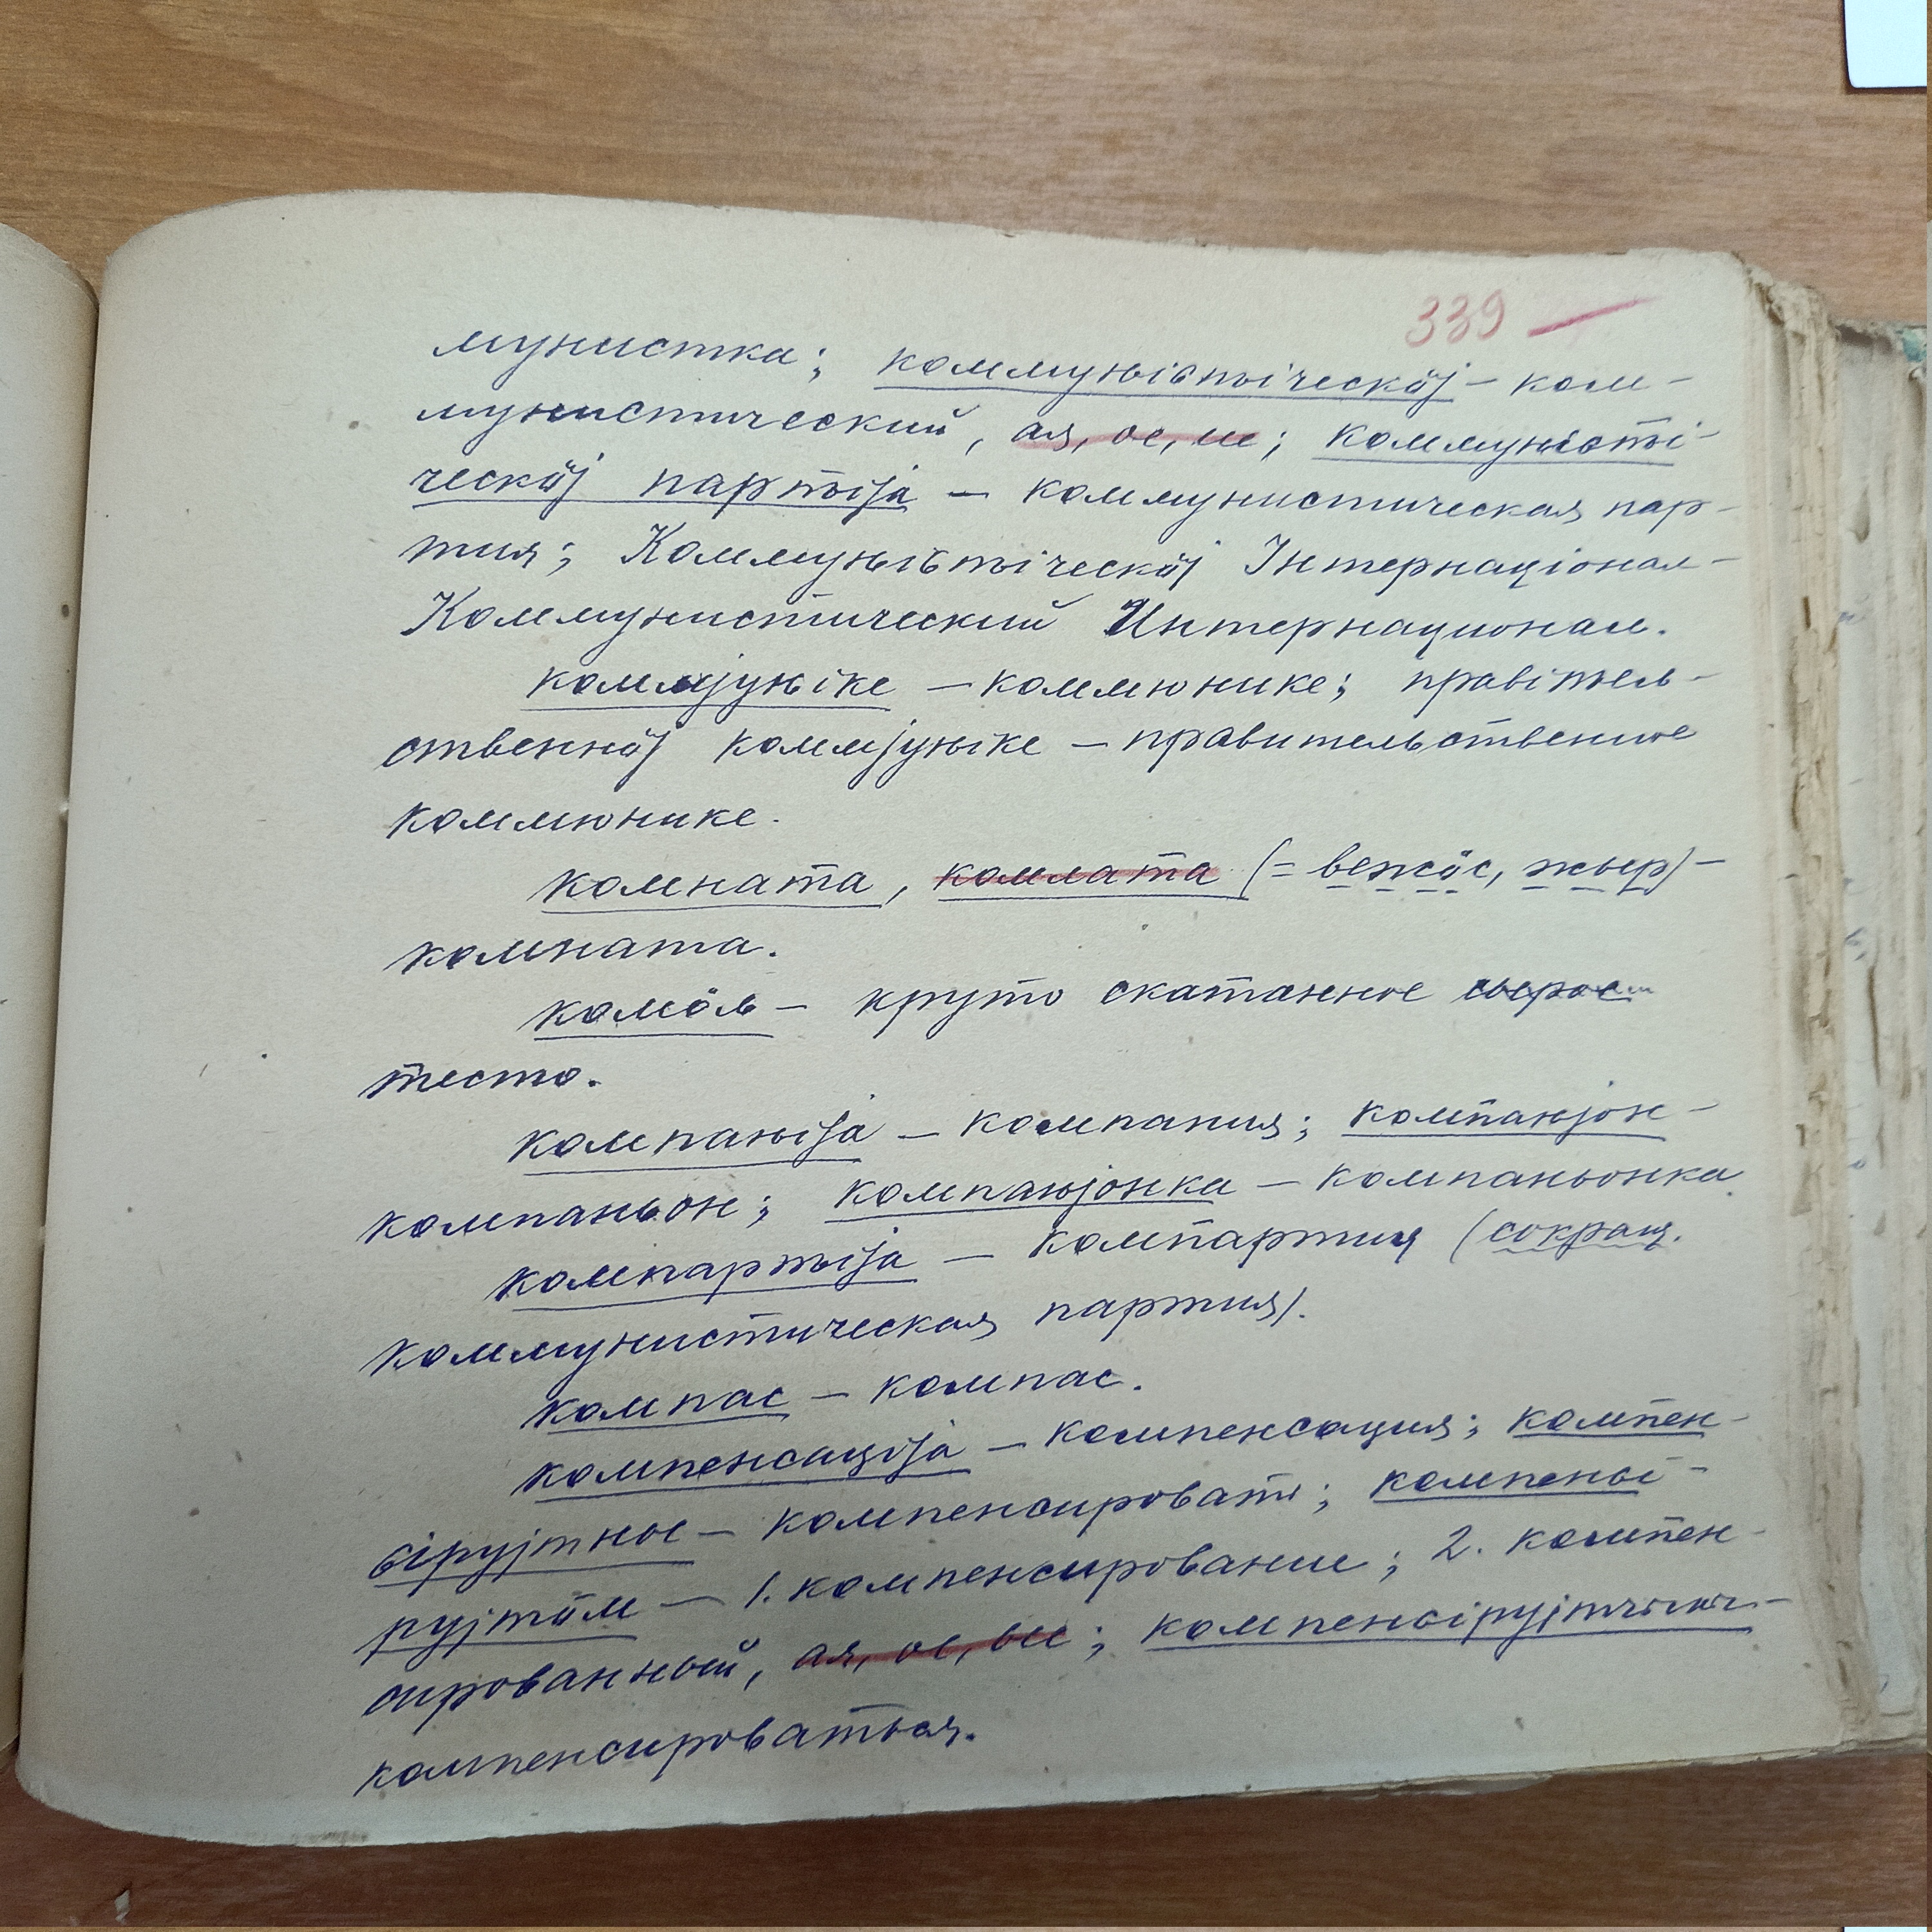 339 —
мунистка; коммуњіԍтічеcкӧј – ком-
мунистический, ая, ое, ие; коммуњіԍті-
ческӧј партіја – коммунистическая пар-
тия; Коммуњіԍтіческӧј Інтернаціонал –
Коммунистический Интернационал.
коммјуњіке – коммюнике; правітель-
ственнӧј коммјуњіке – правительственное
коммюнике.
комната, комлата (= вежӧс, жыр) –
комната.
комӧль – круто скатанное
тесто.
компањіја – компания; компањјон –
компаньон; компањјонка – компаньонка.
компартіја – компартия (сокращ.
коммунистическая партия).
компас – компас.
компенсаціја – компенсация; компен-
ԍірујтны – компенсировать; компенԍі-
рујтӧм – 1. компенсирование; 2. компен-
сированный, ая, ое, ые; компенԍірујтчыны –
компенсироваться.